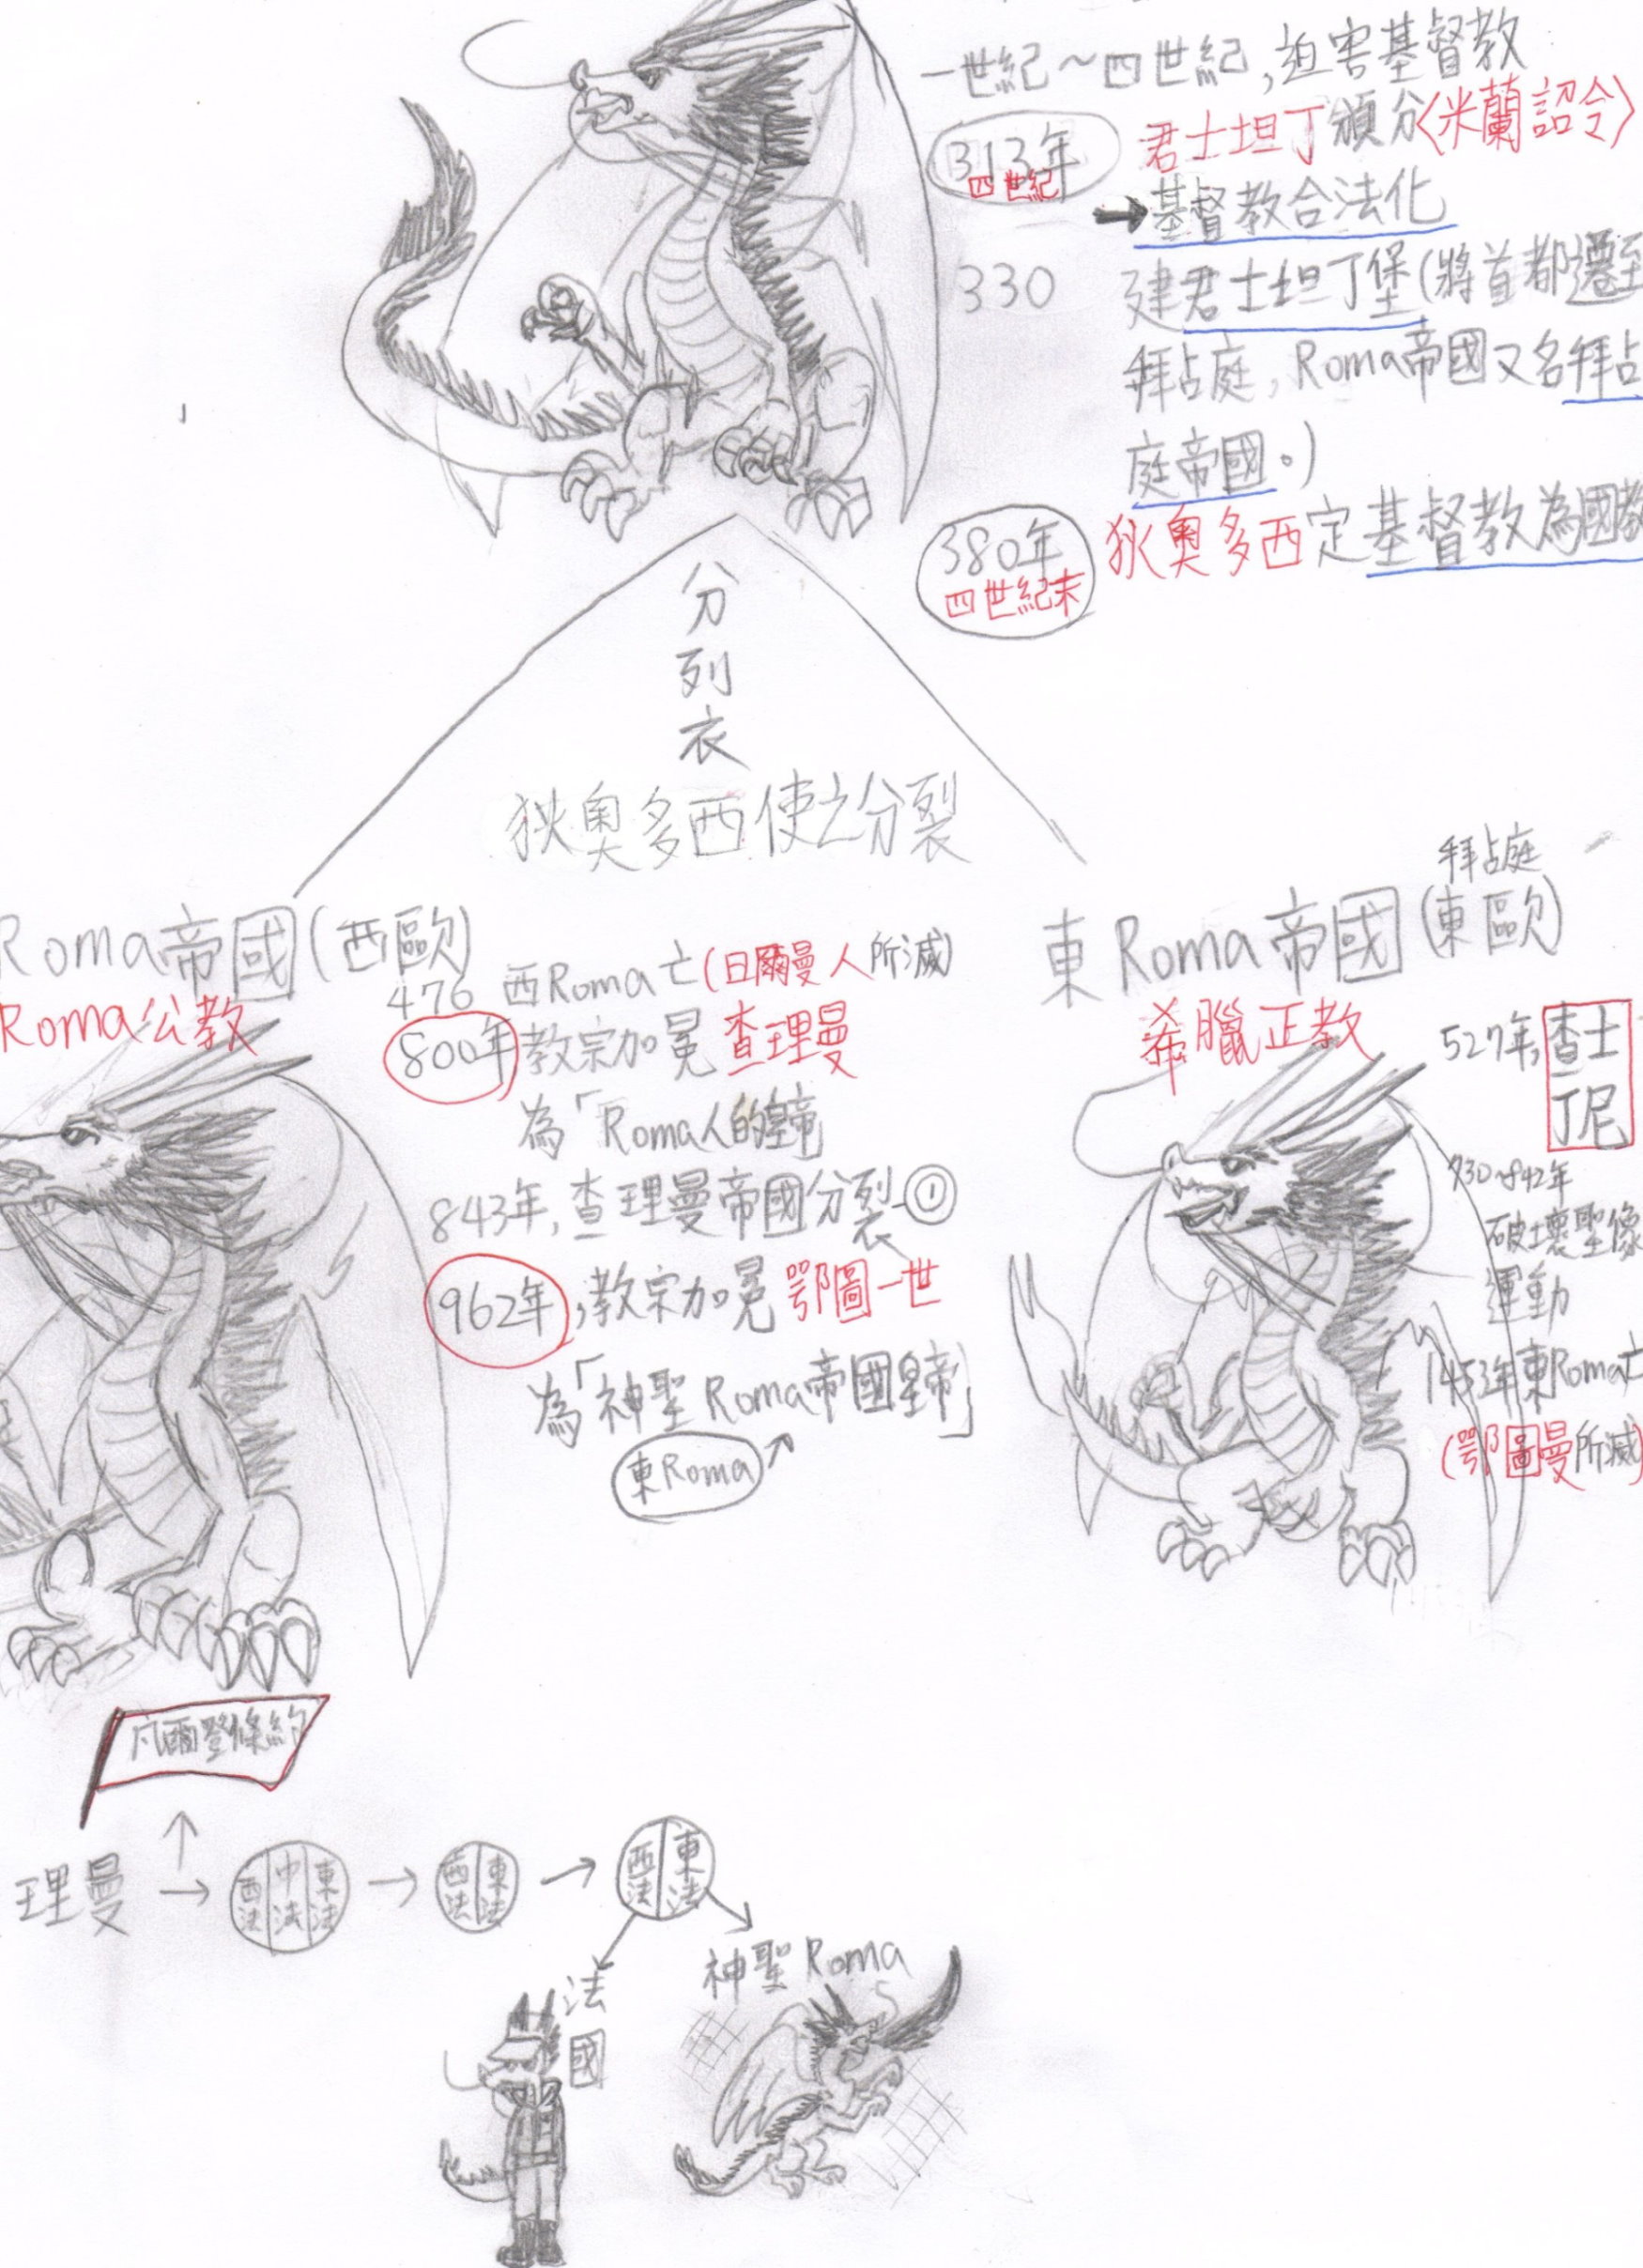 一世紀~四世紀,迫害基督教
313年
四世紀
君士坦丁頒分〈米蘭詔令〉
→基督教合法化
330
建君士坦丁堡(將首都遷至
拜占庭,Roma帝國又名拜占
庭帝國。)
380年
四世紀末
狄奧多西定基督教為國教
分
列
衣
狄奧多西使之分裂
Roma帝國(西歐)
Roma公教
476 西Roma亡(日爾曼人所滅)
800年教宗加冕查理曼
為「Roma人的皇帝
843年,查理曼帝國分裂-①
962年,教宗加冕鄂圖一世
為「神聖Roma帝國皇帝」
東Roma↗
拜占庭
東Roma帝國(東歐)
希臘正教
527年,查士
丁尼
730~842年
破壞聖像
運動
1453年東Roma亡
(鄂圖曼所滅)
凡爾登條約
↑
理曼→西法|中法|東法→西法|東法→西法|東法
法國
神聖Roma